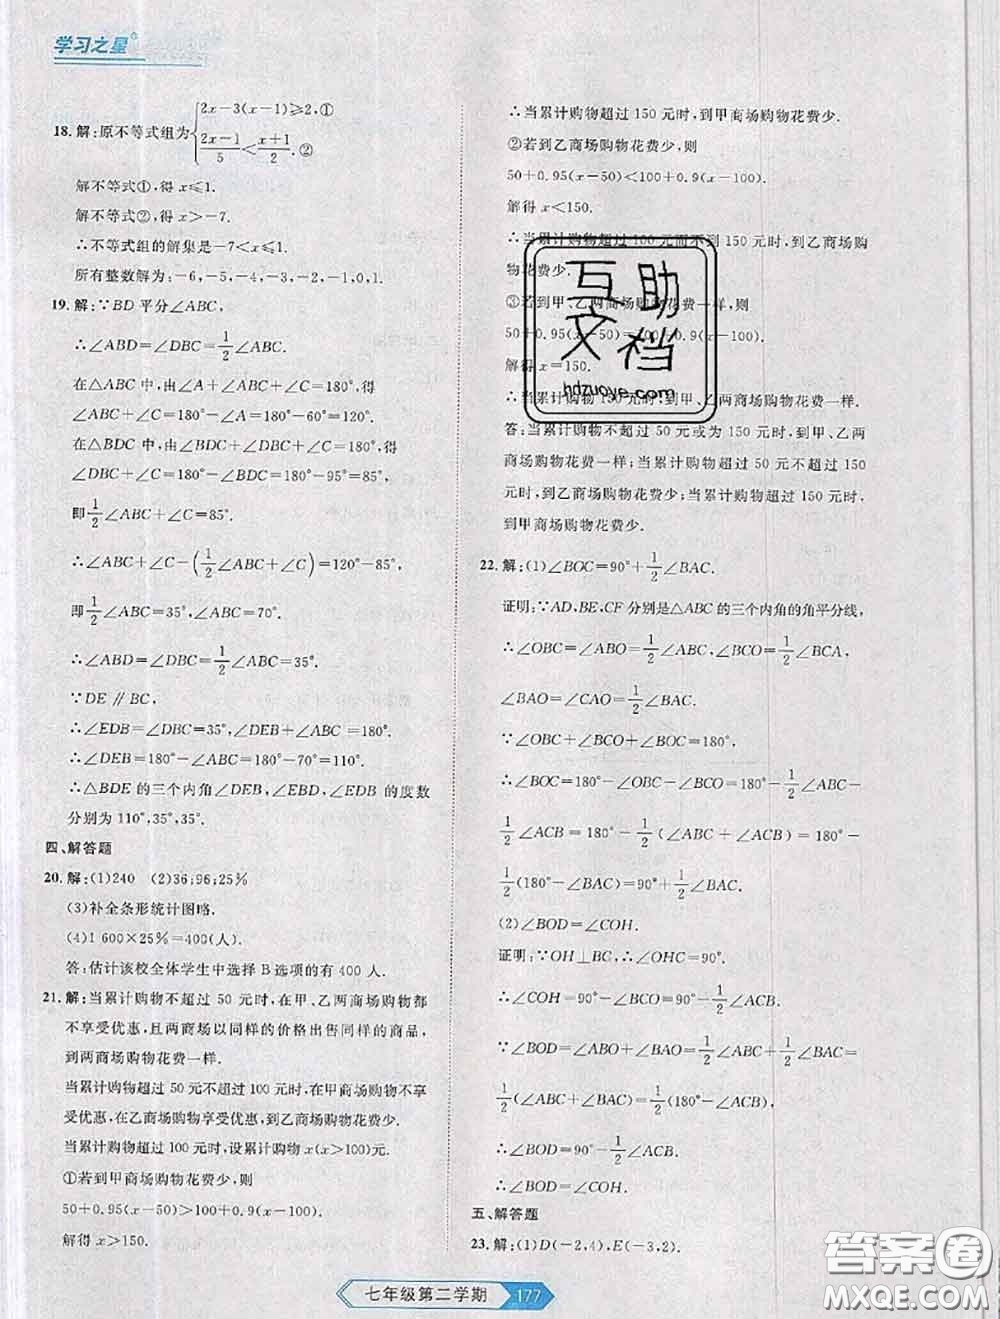 学习之星
18. 解:原不等式组为{2x-3(x-1)⩾2,①
(2x-1)/5<(x+1)/2.②
解不等式①,得 x⩽1.
解不等式②,得 x>-7.
∴不等式组的解集是-7<x⩽1.
所有整数解为:-6,-5,-4,-3,-2,-1,0,1.
19. 解:∵BD 平分∠ABC,
∴∠ABD=∠DBC=1/2∠ABC.
在△ABC 中,由∠A+∠ABC+∠C=180°,得
∠ABC+∠C=180°-∠A=180°-60°=120°.
在△BDC 中,由∠BDC+∠DBC+∠C=180°,得
∠DBC+∠C=180°-∠BDC=180°-95°=85°,
即1/2∠ABC+∠C=85°.
∴∠ABC+∠C-(1/2∠ABC+∠C)=120°-85°,
即1/2∠ABC=35°,∠ABC=70°.
∴∠ABD=∠DBC=1/2∠ABC=35°.
∵DE∥BC,
∴∠EDB=∠DBC=35°,∠DEB+∠ABC=180°.
∴∠DEB=180°-∠ABC=180°-70°=110°.
∴△BDE 的三个内角∠DEB、∠EBD、∠EDB 的度数
分别为 110°,35°,35°.
四、解答题
20. 解:(1)240 (2)36;96;25%
(3)补全条形统计图略.
(4)1 600×25%=400(人).
答:估计该校全体学生中选择 B 选项的有 400 人.
21. 解:当累计购物不超过 50 元时,在甲、乙两商场购物都
不享受优惠,且两商场以同样的价格出售同样的商品,
到两商场购物花费一样.
当累计购物超过 50 元不超过 100 元时,在甲商场购物不享
受优惠,在乙商场购物享受优惠,到乙商场购物花费少.
当累计购物超过 100 元时,设累计购物 x(x>100)元.
①若到甲商场购物花费少,则
50+0.95(x-50)>100+0.9(x-100).
解得 x>150.
∴当累计购物超过 150 元时,到甲商场购物花费少.
②若到乙商场购物花费少,则
50+0.95(x-50)<100+0.9(x-100).
解得 x<150.
∴当累计购物超过 100 元而不到 150 元时,到乙商场购
物花费少.
③若到甲、乙两商场购物花费一样,则
50+0.95(x-50)=100+0.9(x-100).
解得 x=150.
∴当累计购物 150 元时,到甲、乙两商场购物花费一样.
答:当累计购物不超过 50 元或为 150 元时,到甲、乙两
商场购物花费一样;当累计购物超过 50 元不到 150
元时,到乙商场购物花费少;当累计购物超过 150 元时,
到甲商场购物花费少.
22. 解:(1)∠BOC=90°+1/2∠BAC.
证明:∵AD,BE,CF 分别是△ABC 的三个内角的角平分线,
∴∠OBC=1/2∠ABC,∠BCO=1/2∠BCA,
∠BAO=∠CAO=1/2∠BAC.
∵∠OBC+∠BOC+∠BCO=180°,
∴∠BOC=180°-∠OBC-∠BCO=180°-1/2∠ABC-
1/2∠ACB=180°-1/2(∠ABC+∠ACB)=180°-
1/2(180°-∠BAC)=90°+1/2∠BAC.
(2)∠BOD=∠COH.
证明:∵OH⊥BC,∴∠OHC=90°.
∴∠COH=90°-∠OCH=90°-1/2∠ACB.
∵∠BOD=∠ABO+∠BAO=1/2∠ABC+1/2∠BAC=
1/2(∠ABC+∠BAC)=1/2(180°-∠ACB),
∴∠BOD=90°-1/2∠ACB.
∴∠BOD=∠COH.
五、解答题
23. 解:(1)D(-2,4),E(-3,2).
七年级第二学期 177
互助
文档
hdzuoye.com
答案圈
MXQE.COM